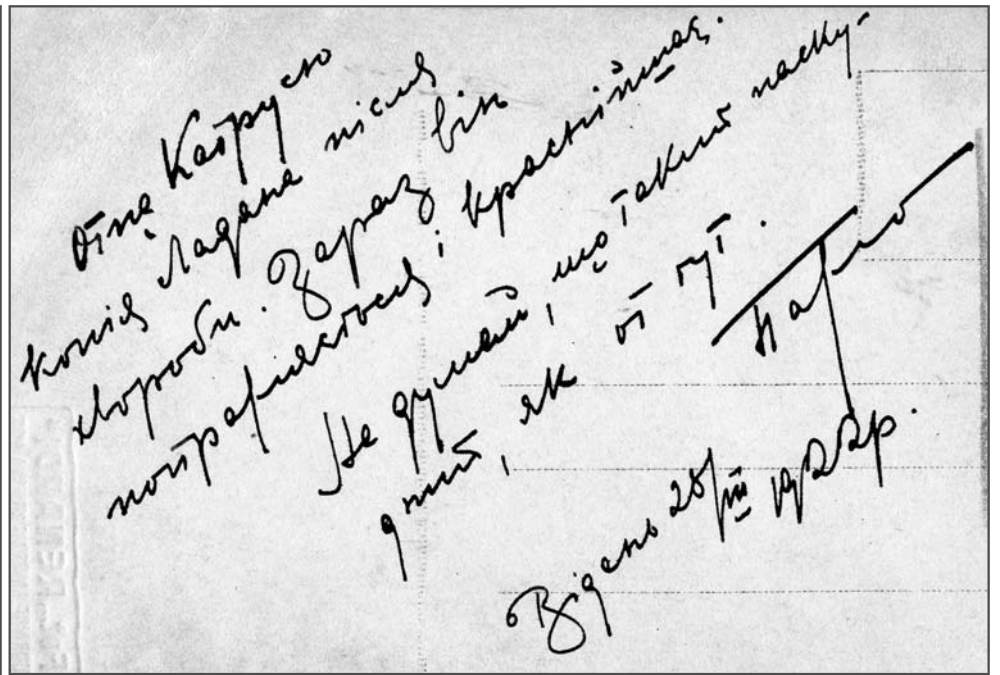 Отце Катрусю
копія Ладана після
хвороби. Зараз він
поправляється і краснійшає.
Не думай, що такий паску-
дний, як от тут.
Павло
Відень 28/III 1922р.